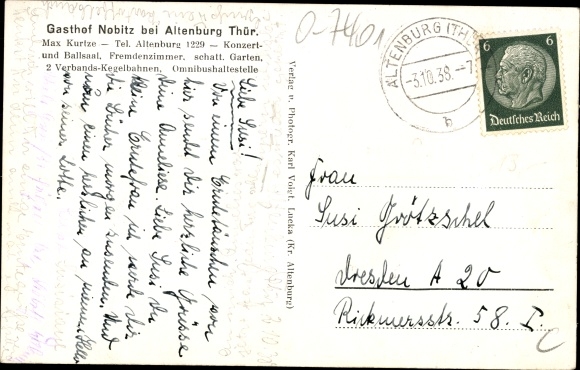 Gasthof Nobitz bei Altenburg Thür.
Max Kurtze — Tel. Altenburg 1229 — Konzert-
und Ballsaal, Fremdenzimmer, schatt. Garten,
2 Verbands-Kegelbahnen, Omnibushaltestelle
Liebe Susi!
Von einem Erntetänzchen von
hier sendet dir herzliche Grüsse
Deine Anneliese. Liebe Susi du
kleine Erntefrau ich werde dir
die Bücher morgen zusenden. Und
nun einen herzlichen an
von seiner Lotte.
Verlag u. Photogr. Karl Voigt, Lucka (Kr. Altenburg)
O-7401
ALTENBURG (THÜR)
-3.10.38.-7
b
6 6
Deutsches Reich
Frau
Susi Grötzschel
Dresden A 20
Rickmersstr. 58. I.